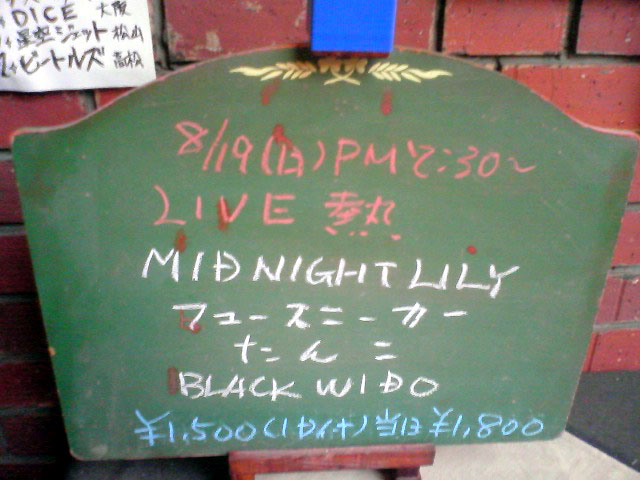 DICE 大阪
星空ジェット 松山
ビートルズ 高松
8/19(日)PM7:30~
LIVE 熱
MIDNIGHT LILY
フュースニーカー
たんこ
BLACK WIDO
¥1,500(1D付)当日¥1,800